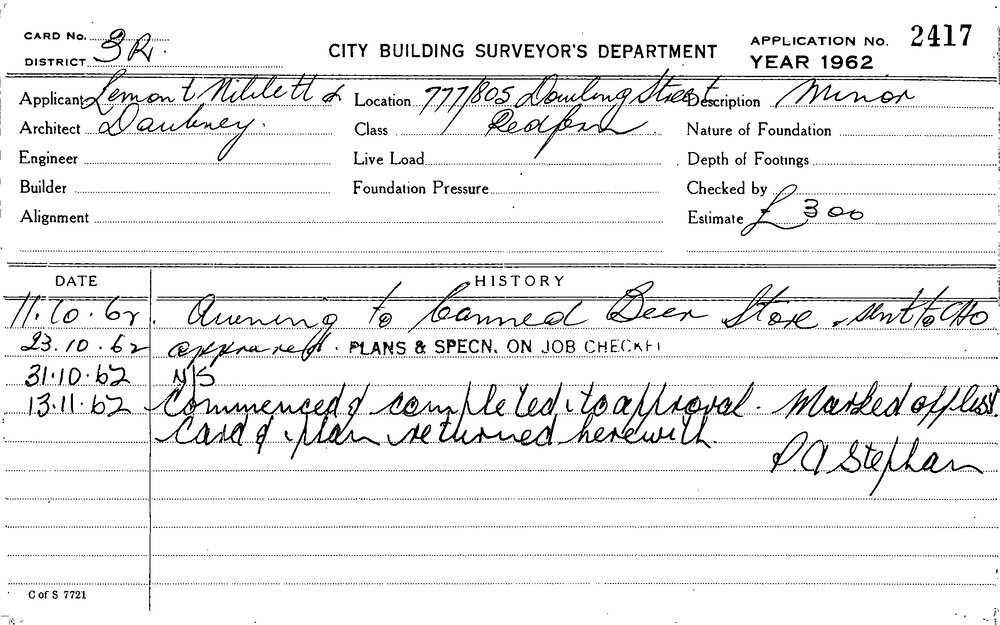 CARD No. 3R.
DISTRICT
CITY BUILDING SURVEYOR'S DEPARTMENT
APPLICATION No. 2417
YEAR 1962
Applicant Lemont Niblett &
Architect Daubney.
Engineer
Builder
Alignment
Location 777/805 Dowling Street
Class Redfern
Live Load
Foundation Pressure
Description Minor
Nature of Foundation
Depth of Footings
Checked by
Estimate £300
DATE HISTORY
11.10.62. Awning to Canned Beer Store, sent to CHO
23.10.62 approved. PLANS & SPECN. ON JOB CHECKED
31.10.62 N/S
13.11.62 Commenced & completed to approval. Marked off list
Card & plan returned herewith.
P.A Stephan
C of S 7721